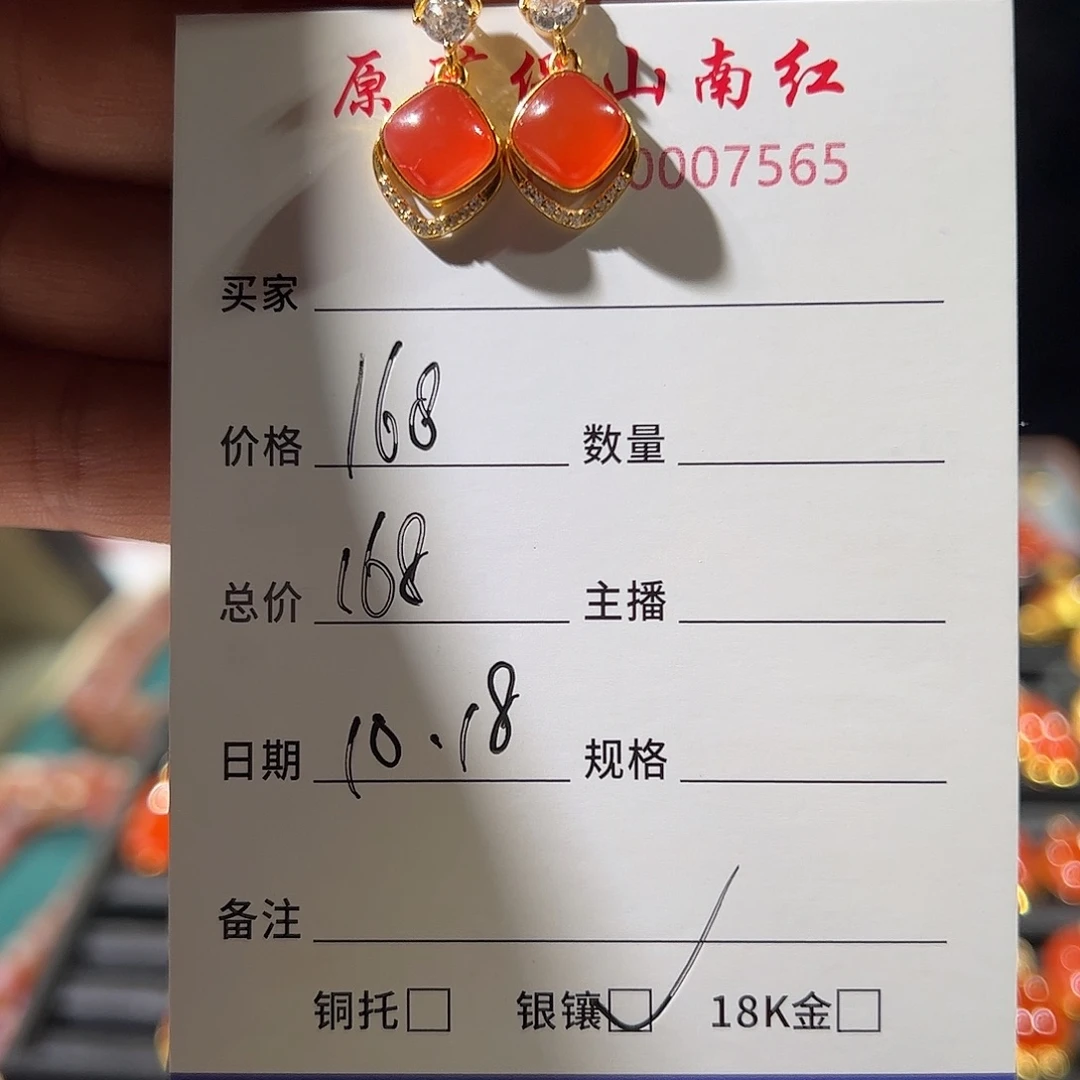 原矿保山南红
0007565
买家
价格 168 数量
总价 168 主播
日期 10.18 规格
备注
铜托□ 银镶☑ 18K金□